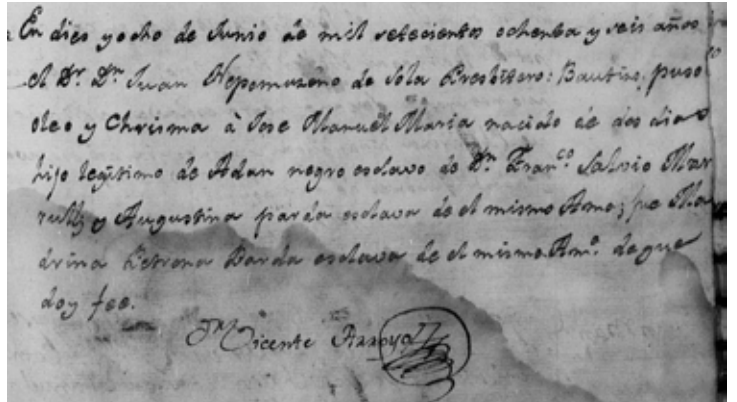 En dies y ocho de Junio de mil setecientos ochenta y seis años
el Dr. Dn Juan Nepomuzeno de Sola Presbitero: Bautizo, puso
oleo y Chrisma à Jose Manuel Maria nacido de dos dias
hijo legitimo de Adan negro esclavo de Dn Franco Salvio Mar
rull; y Augustina parda esclava de el mismo Amo; fue Ma
drina Petrona Parda esclava de el mismo Amo. de que
doy fee.
Vicente Arroyo